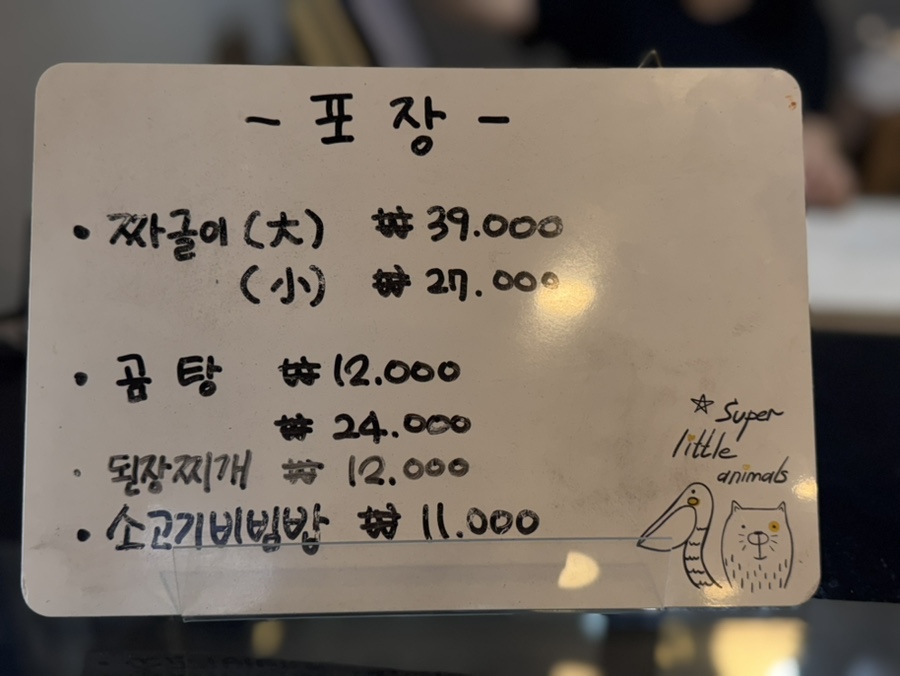 - 포 장 -
• 짜글이 (大) ₩ 39.000
(小) ₩ 27.000
• 곰 탕 ₩ 12.000
₩ 24.000
• 된장찌개 ₩ 12.000
• 소고기비빔밥 ₩ 11.000
☆ Super
little
animals